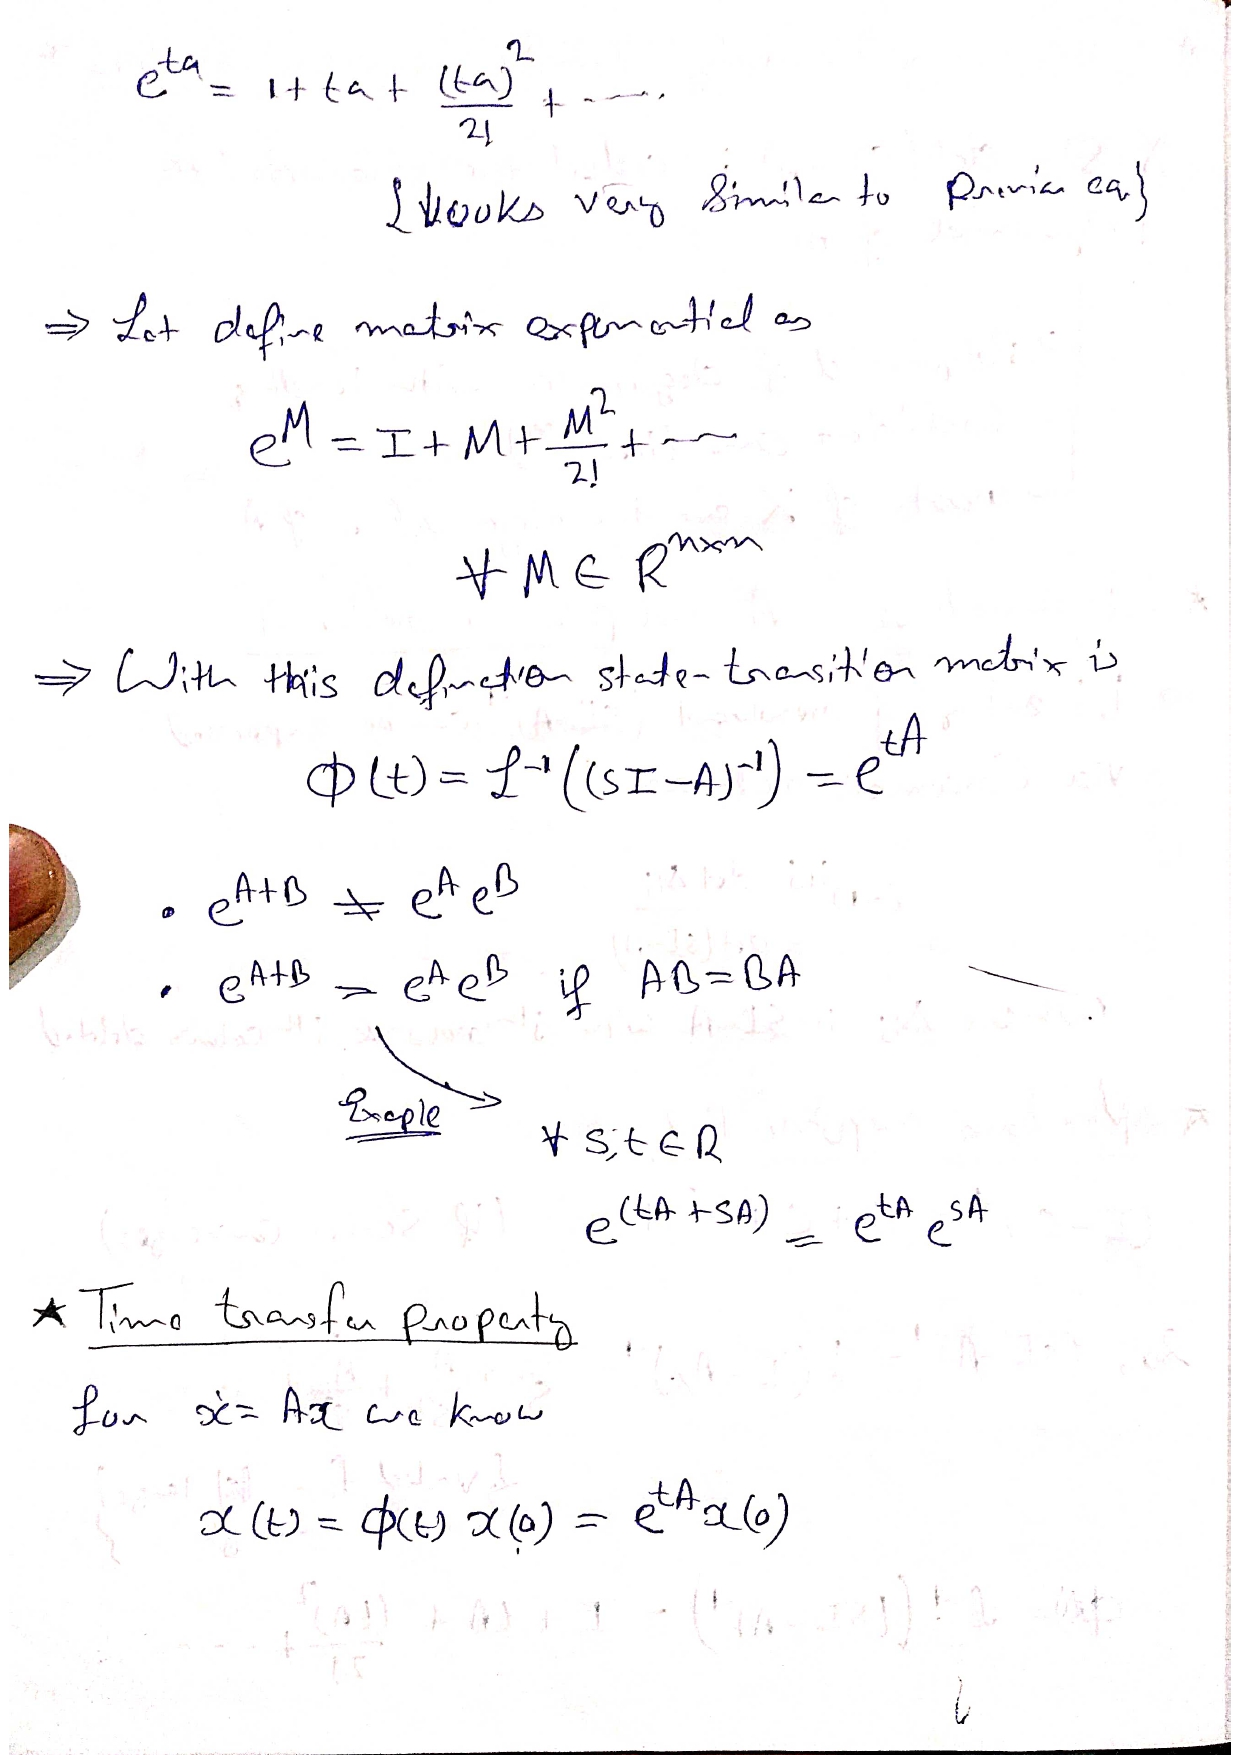 e^{ta} = 1 + ta + (ta)^2/2! + ......
{Looks very Similar to Previou eq}
⇒ Let define matrix exponential as
e^M = I + M + M^2/2! + ......
∀ M ∈ R^{n×n}
⇒ With this definition state-transition matrix is
Φ(t) = ℒ^{-1}((sI-A)^{-1}) = e^{tA}
• e^{A+B} ≠ e^A e^B
• e^{A+B} = e^A e^B if AB=BA
Exaple
∀ s,t ∈ R
e^{(tA+sA)} = e^{tA} e^{sA}
★ Time transfer property
for ẋ = Ax we know
x(t) = φ(t) x(0) = e^{tA} x(0)